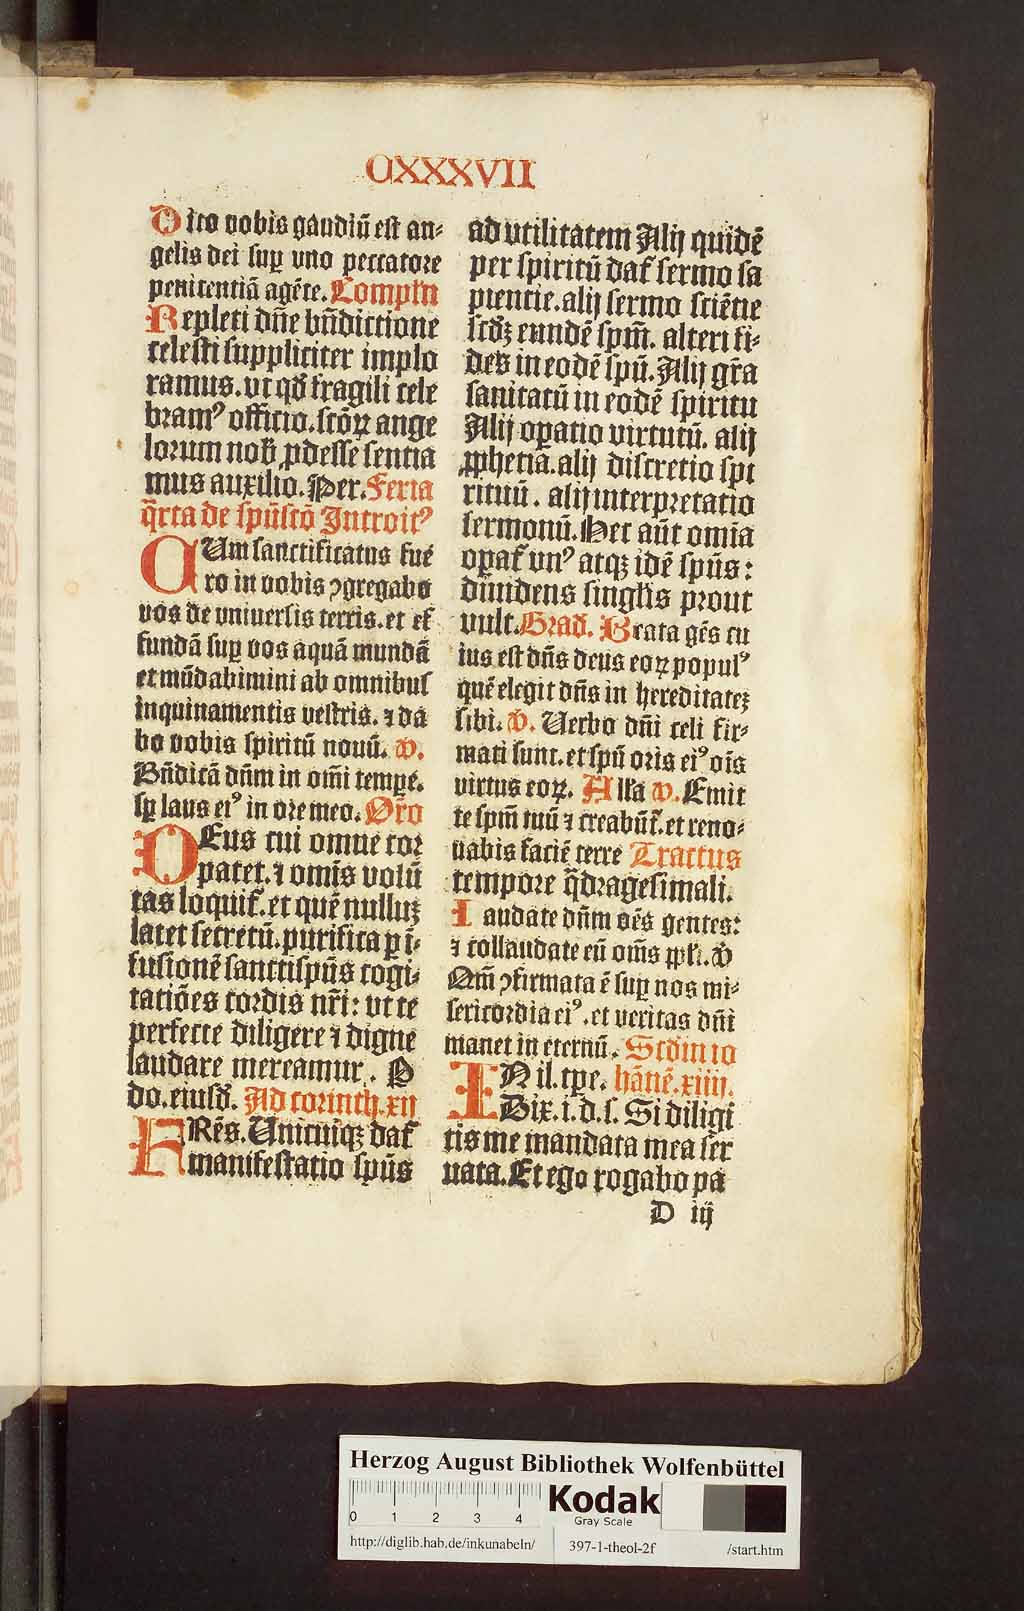 CXXXVII
Dico vobis gaudiū est an⸗
gelis dei suꝑ vno peccatore
penitentiā agēte. Complēn
Repleti dn̄e bn̄dictione
celesti suppliciter implo
ramus. vt qđ fragili cele
bramꝰ officio. scōꝝ ange
lorum nob̄ ꝓdesse sentia
mus auxilio. Per. Feria
q̄rta de spūscō Introitꝰ
CUm sanctificatus fué
ro in vobis ꝯgregabo
vos de vniuersis terris. et ef
fundā suꝑ vos aquā mundā
et mūdabimini ab omnibus
inquinamentis vestris. ⁊ da
bo vobis spiritū nouū. v̄.
Bn̄dicā dn̄m in om̄i tempe.
sꝑ laus eiꝰ in ore meo. Or̄o
DEus cui omne cor
patet. ⁊ omīs volū
tas loquiť. et quē nulluꝫ
latet secretū. purifica ꝑ ī⸗
fusionē sanctispūs cogi⸗
tatiōes cordis nr̄i: vt te
perfecte diligere ⁊ digne
laudare mereamur. P
do. eiusđ. Ad corinth. xij
FRēs. Unicuiqꝫ dať
manifestatio spūs
ad vtilitatem Alij quidē
per spiritū dať sermo sa
pientie. alij sermo sciētie
scđꝫ eundē spm̄. alteri fi⸗
des in eodē spū. Alij gr̄a
sanitatū in eodē spiritu
Alij oꝑatio virtutū. alij
ꝓphetia. alij discretio spi
rituū. alij interpretatio
sermonū. Hec aūt omīa
oꝑať vnꝰ atqꝫ idē spūs:
diuidens singlīs prout
vult. Grad. Beata gēs cu
ius est dn̄s deus eoꝝ populꝰ
quē elegit dn̄s in hereditateꝫ
sibi. v̄. Uerbo dn̄i celi fir⸗
mati sunt. et spū oris eiꝰ oīs
virtus eoꝝ. Alľa v̄. Emit
te spm̄ tuū ⁊ creabūť. et reno⸗
uabis faciē terre Tractus
tempore q̄dragesimali.
Laudate dn̄m oēs gentes:
⁊ collaudate eū om̄s ppľi. v̄
Qm̄ ꝯfirmata ē suꝑ nos mi⸗
sericordia eiꝰ. et veritas dn̄i
manet in eternū. Scđm io
IN il. tpe. hānē. xiiij.
Dix. i. d. s. Si diligi
tis me mandata mea ser
uata. Et ego rogabo pa
D iij
Herzog August Bibliothek Wolfenbüttel
0 1 2 3 4
Kodak
Gray Scale
http://diglib.hab.de/inkunabeln/ 397-1-theol-2f /start.htm